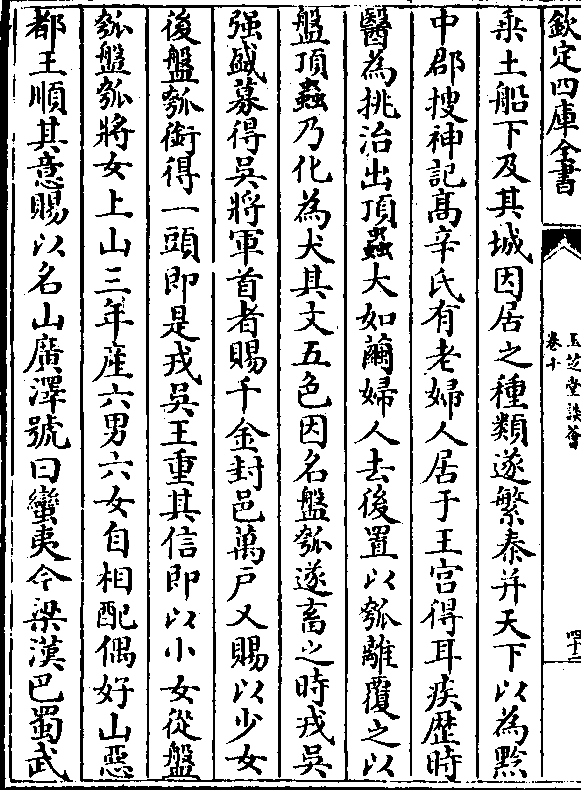 欽定四庫全書
玉芝堂談薈
卷十
四十二
乗土船下及其城因居之種類遂繁秦并天下以為黔
中郡搜神記髙辛氏有老婦人居于王宫得耳疾歴時
醫為挑治出頂蟲大如繭婦人去後置以瓠離覆之以
盤頂蟲乃化為犬其文五色因名盤瓠遂畜之時戎吳
强盛募得吳將軍首者賜千金封邑萬戸又賜以少女
後盤瓠銜得一頭即是戎吳王重其信即以小女從盤
瓠盤瓠將女上山三年産六男六女自相配偶好山惡
都王順其意賜以名山廣澤號曰蠻夷今梁漢巴蜀武